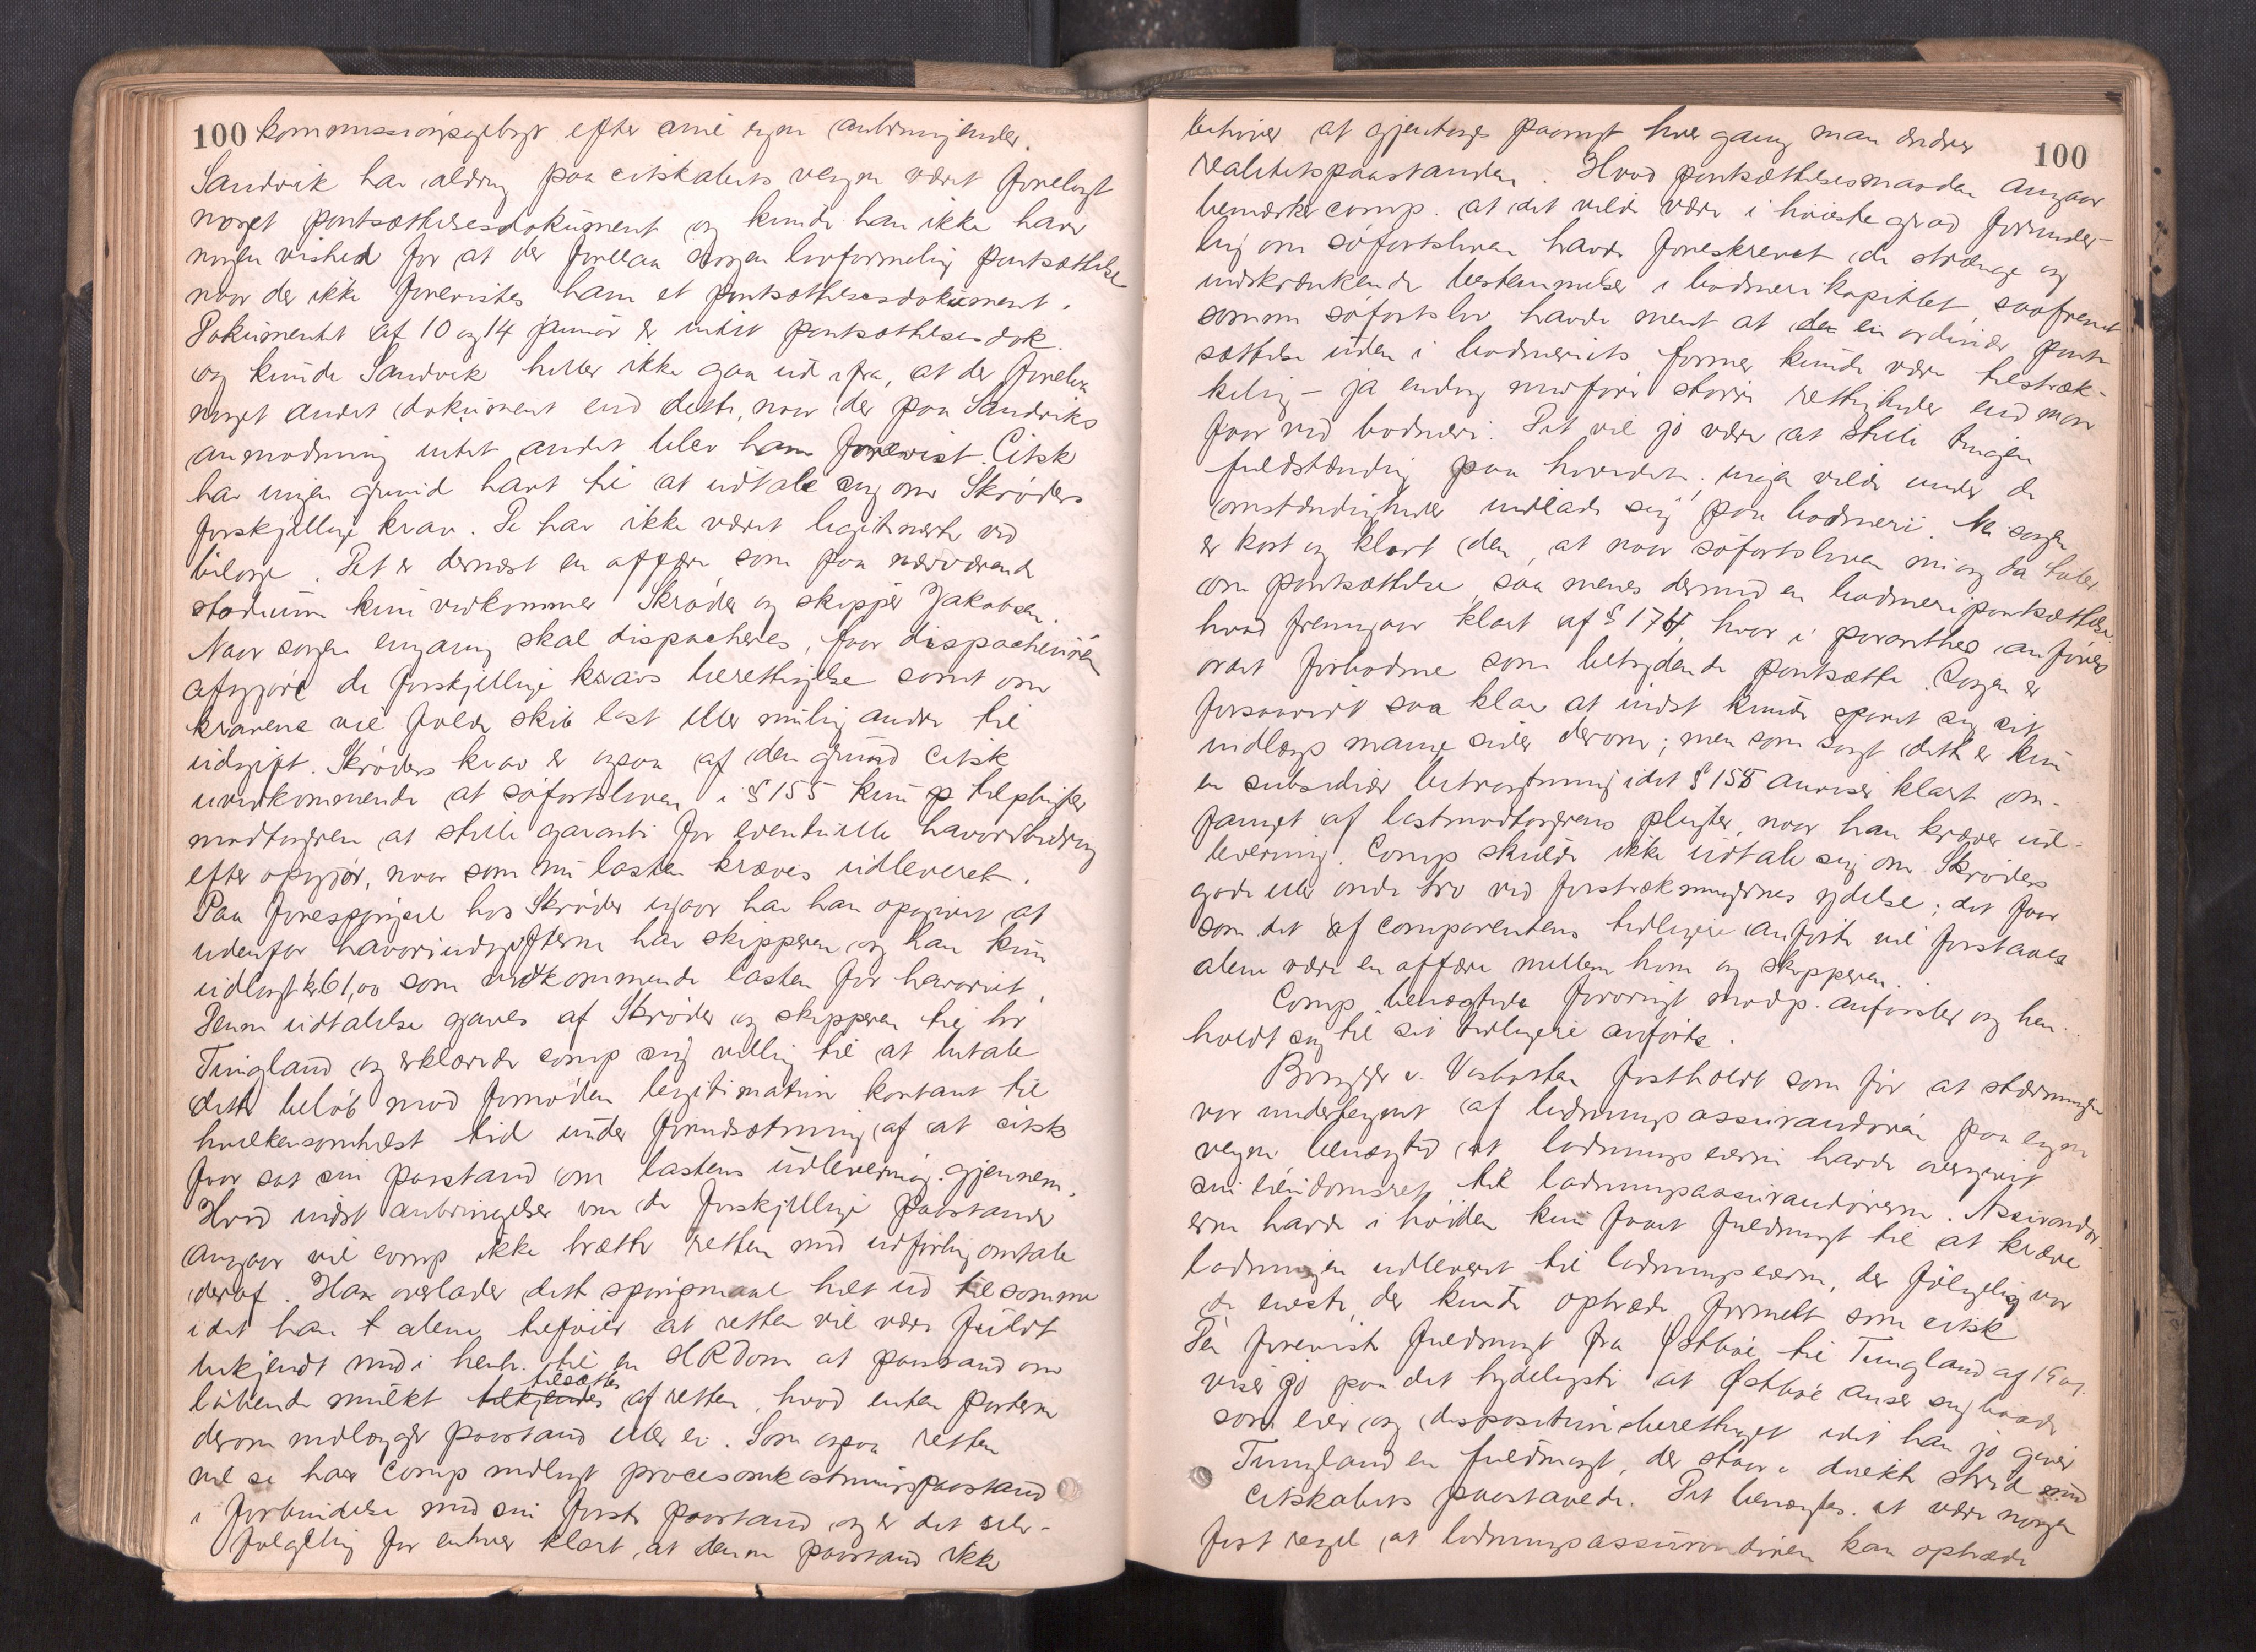 100 kommissionsgebyr efter sine egne anbringender.
Sandvik har aldrig paa citskabets vegne været forelagt
noget pantsættelsesdokument og kunde han ikke have
nogen vished for at der forelaa nogen lovformelig pantsættelse
naar der ikke forevistes ham et pantsættelsesdokument.
Dokumentet af 10 og 14 januar er intet pantsættelsesdok.
og kunde Sandvik heller ikke gaa ud ifra, at der forelaa
noget andet dokument end dette, naar der paa Sandviks
anmodning intet andet blev ham forevist. Citsk
har ingen grund havt til at udtale sig om Skrøders
forskjellige krav. De har ikke været legitimerte ved
bilage. Det er dernæst en affære som paa nærværende
stadium kun vedkommer Skrøder og skipper Jakobsen.
Naar sagen engang skal dispacheres, faar dispachøren
afgjøre de forskjellige kravs berettigelse samt om
kravene vil falde skib last eller mulig andre til
udgift. Skrøders krav er ogsaa af den grund citsk
uvedkommende at søfartsloven i § 155 kun p tilpligter
modtageren at stille garanti for eventuelle havaribidrag
efter opgjør, naar som nu lasten kræves udleveret.
Paa forespørgsel hos Skrøder igaar har han opgivet at
udenfor havariudgifterne har skipperen og han kun
udlagt kr 61,00 som vedkommende lasten før havariet.
Denne udtalelse gaves af Skrøder og skipperen til hr
Tingland og erklærede comp sig villig til at betale
dette beløb mod fornøden legitimation kontant til
hvilkensomhelst tid under forudsætning af at citsk
faar sat sin paastand om lastens udlevering gjennem.
Hvad indst anbringelser om de forskjellige paastande
angaar vil comp ikke trætte retten med udførlig omtale
deraf. Han overlader dette spørgsmaal helt ud til samme
idet han t alene tilføier at retten vil være fuldt
bekjendt med i henh. til en HRDom at paastand om
løbende mulkt tilkjendes tilsættes af retten, hvad enten parterne
derom nedlægger paastand eller ei. Som ogsaa retten
vil se har comp nedlagt procesomkostningspaastand
i forbindelse med sin første paastand og er det selv-
følgelig for enhver klart at denne paastand ikke
100
behøver at gjentages paanyt hver gang man ændrer
realitetspaastanden. Hvad pantsættelsesmaaden angaar
bemærker comp. at det vilde være i høieste grad forunder-
lig om søfartsloven havde foreskrevet de strænge og
indskrænkende bestemmelser i bodmerikapitlet, saafremt
samme søfartslov havde ment at den en ordinær pant-
sættelse uden i bodmeriets former kunde være tilstræk-
kelig – ja endog medføre større rettigheder end man
faar ved bodmeri. Det vil jo være at stille tingen
fuldstændig paa hovedet; ingen vilde under de
omstændigheder indlade sig paa bodmeri. Ne sagen
er kort og klart den, at naar søfartsloven nu og da taler
om pantsættelse, saa menes dermed en bodmeripantsættelse
hvad fremgaar klart af § 174, hvor i paranthes anføres
ordet forbodme som betydende pantsætte. Sagen er
forsaavidt saa klar at indst kunde sparet sig sit
indlægs mange sider derom; men som sagt dette er kun
en subsidiær betragtning idet § 155 anviser klart om-
fanget af lastmodtagerens pligter, naar han kræver ud-
levering. Comp skulde ikke udtale sig om Skrøders
gode eller onde tro ved forstrækningernes ydelse; det faar
som det af comparentens tidligere anførte vil forstaaes
alene være en affære mellem ham og skipperen.
Comp. benægtede forøvrigt modp. anførsler og hen-
holdt sig til sit tidligere anførte.
Borgger v. Vasbotten fastholdt som før at stævningen
var undertegnet af ladningsassurandøren paa egne
vegne benægted at ladningseieren havde overgivet
sin eiendomsret til ladningsassurandørerne. Assurandør-
erne havde i høiden kun faaet fuldmagt til at kræve
ladningen udleveret til ladningseieren, der følgelig var
de eneste, der kunde optræde formelt som citsk
Den foreviste fuldmagt fra Østbøe til Tungland af 19 ag.
viser jo paa det tydeligste at Østbøe anser sig baade
som eier og dispositionsberettiget idet han jo giver
Tungland en fuldmagt, der staar i direkte strid med
citskabets paastaaede. Det benægtes at være nogen
fast regel at ladningsassurandøren kan optræde